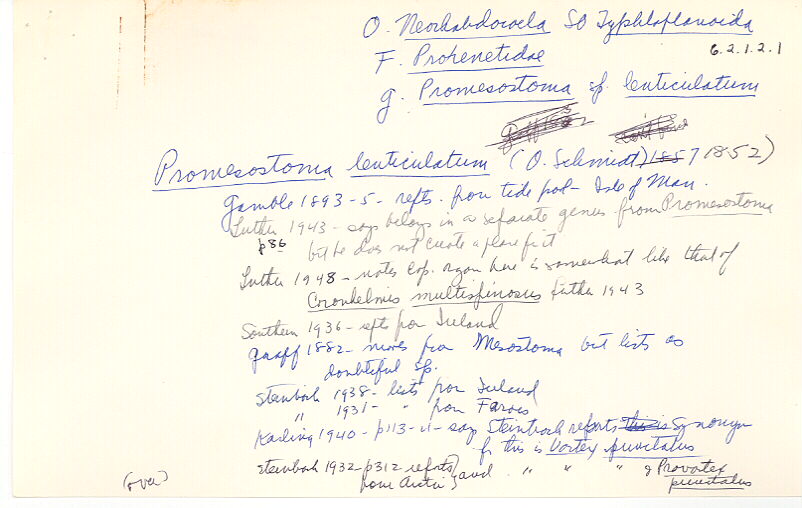 O. Neorhabdocoela SO Typhloplanoida
6.2.1.2.1
F. Proxenetidae
g. Promesostoma sp. lenticulatum
Promesostoma lenticulatum (O. Schmidt) 1857 1852)
Gamble 1893-5 - repts. from tide pol - Isle of Man.
Luther 1943 - says belongs in a separate genus from Promesostoma
p86 but he does not create a place for it
Luther 1948 - notes cop. organ here is somewhat like that of
Coronhelmis multispinosus Luther 1943
Southern 1936 - repts from Ireland
Graff 1882 - moves from Mesostoma but lists as
doubtful sp.
Steinbock 1938 - lists from Iceland
" 1931 - " from Faroes
Karling 1940 - p113-4 - says Steinbock reports this is synonym
for this is Vortex punctatus
Steinbock 1932 - p312 reports and " " " g Provortex
from Arctic punctatus
(over)